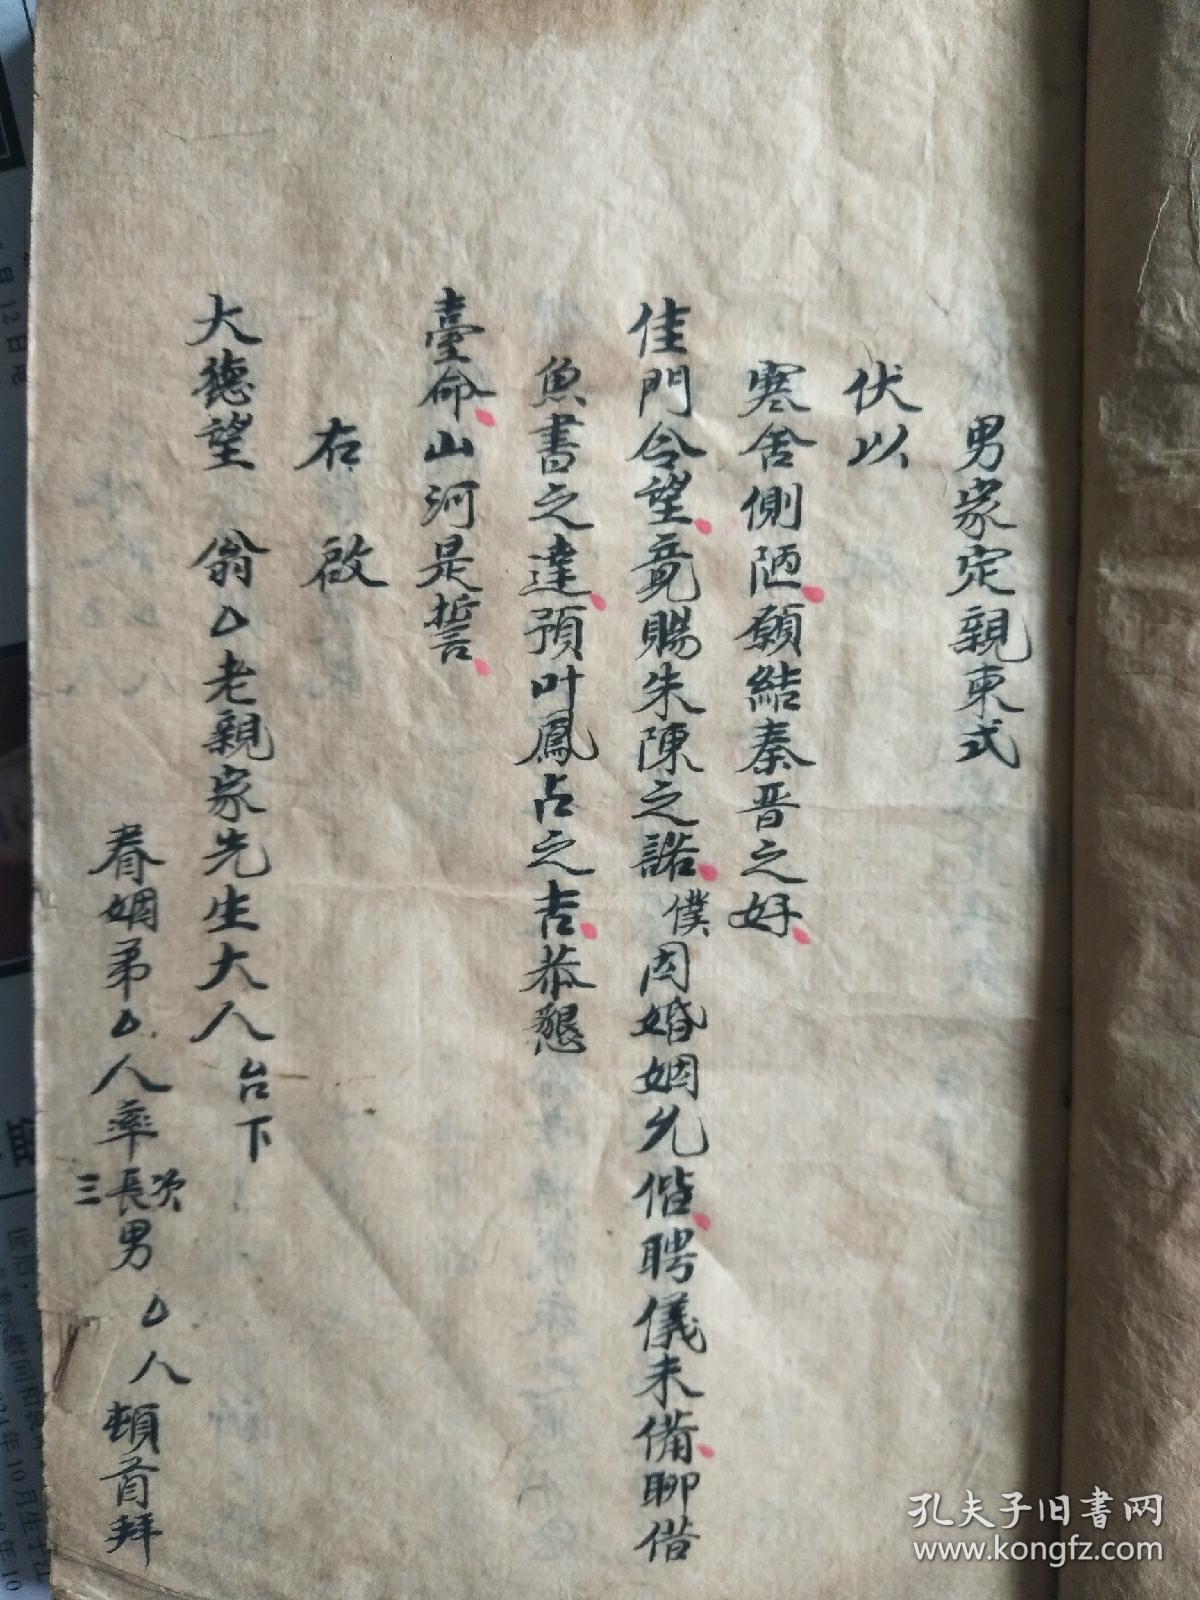 男家定親柬式
伏以
寒舍側陋願結秦晉之好
佳門令望竟賜朱陳之諾僕因婚姻允偕聘儀未備聊借
魚書之達預叶鳳占之吉恭懇
臺命山河是誓
右啟
大德望 翁△老親家先生大人台下
眷姻弟△人率三長次男△人頓首拜
孔夫子旧书网
www.kongfz.com